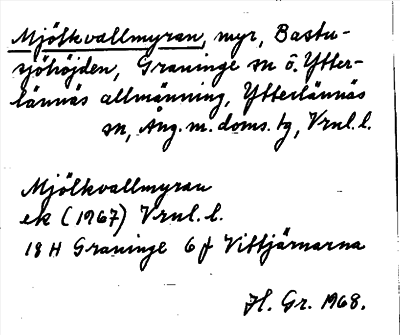 Mjölkvallmyran, myr, Bastu-
sjöhöjden, Graninge sn o. Ytter-
lännäs allmänning, Ytterlännäs
sn, Ång. m. doms. tg, Vrnl. l.
Mjölkvallmyran
ek (1967) Vrnl. l.
18 H Graninge 6 f Vittjärnarna
H. Gr. 1968.